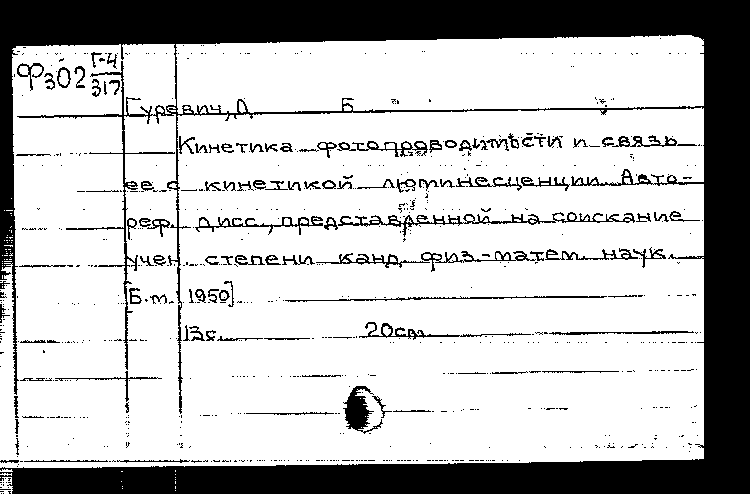 Фз02 Г-4
317
Гуревич, Д Б
Кинетика фотопроводимости и связь
ее с кинетикой люминесценции. Авто-
реф. дисс., представленной на соискание
учен. степени канд. физ.-матем. наук.
[Б.м. 1950]
13с. 20см.